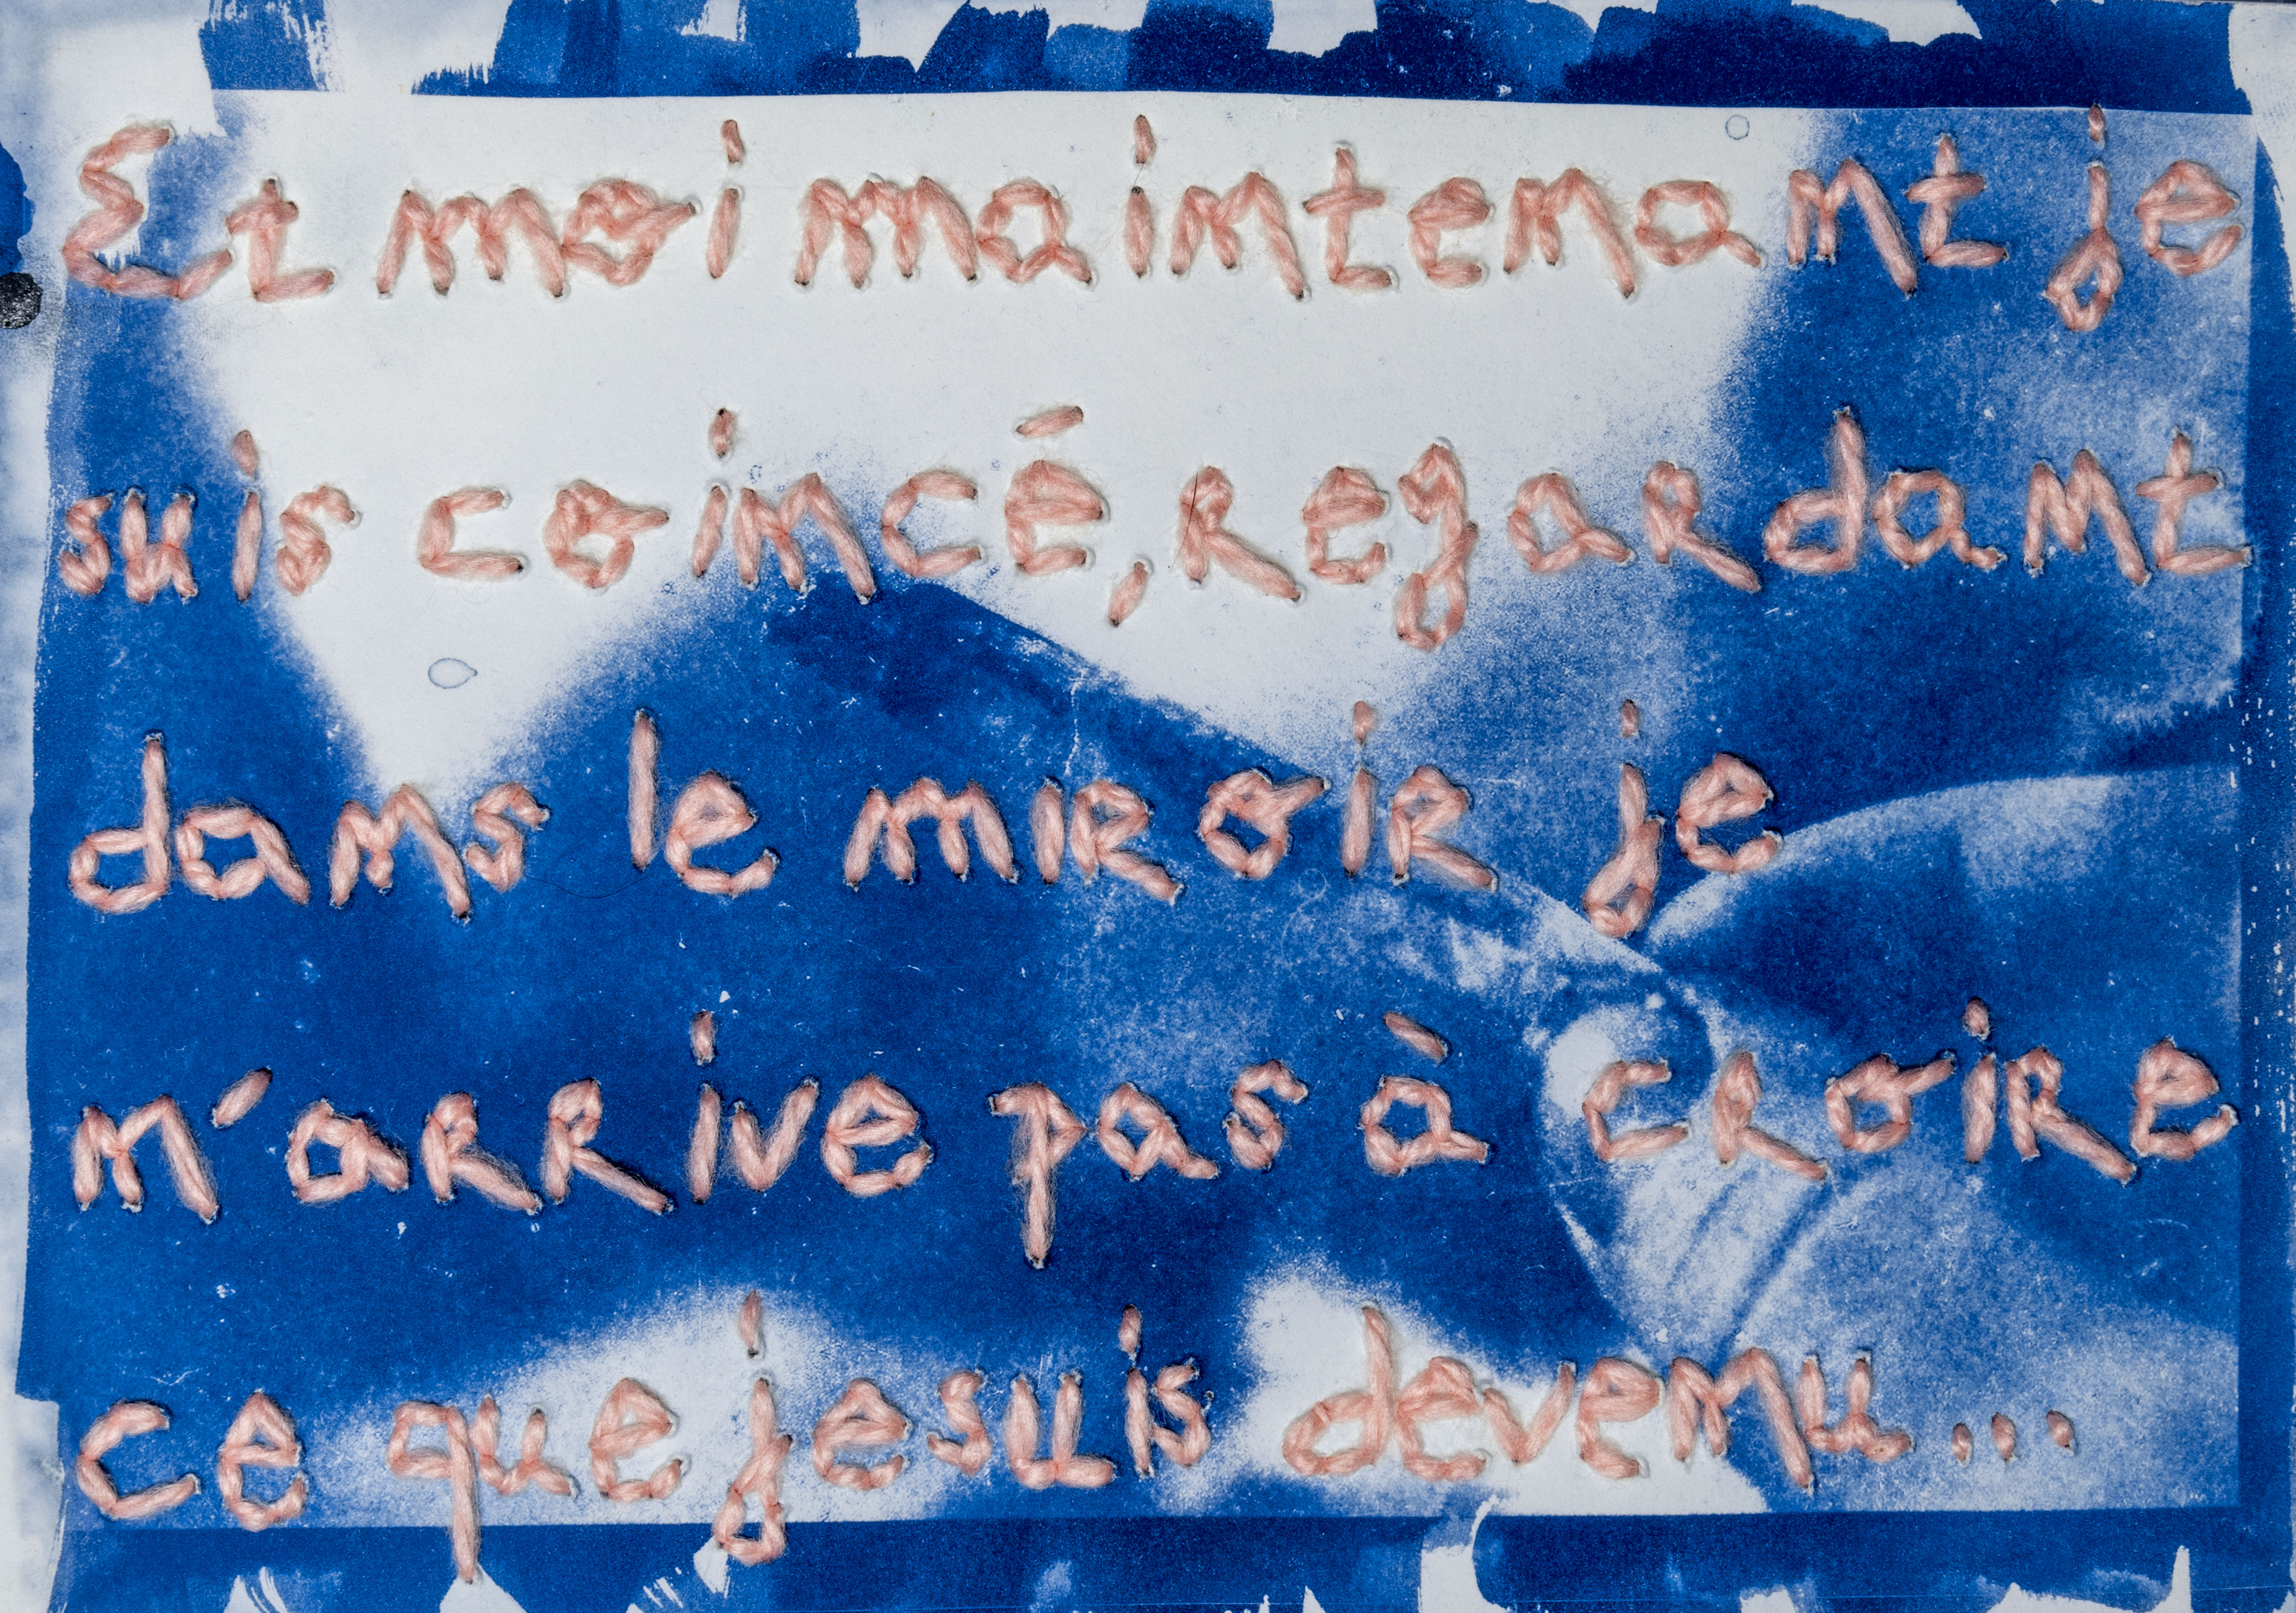 Et moi maintenant je
suis coincé, regardant
dans le miroir je
m'arrive pas à croire
ce que je suis devenu...